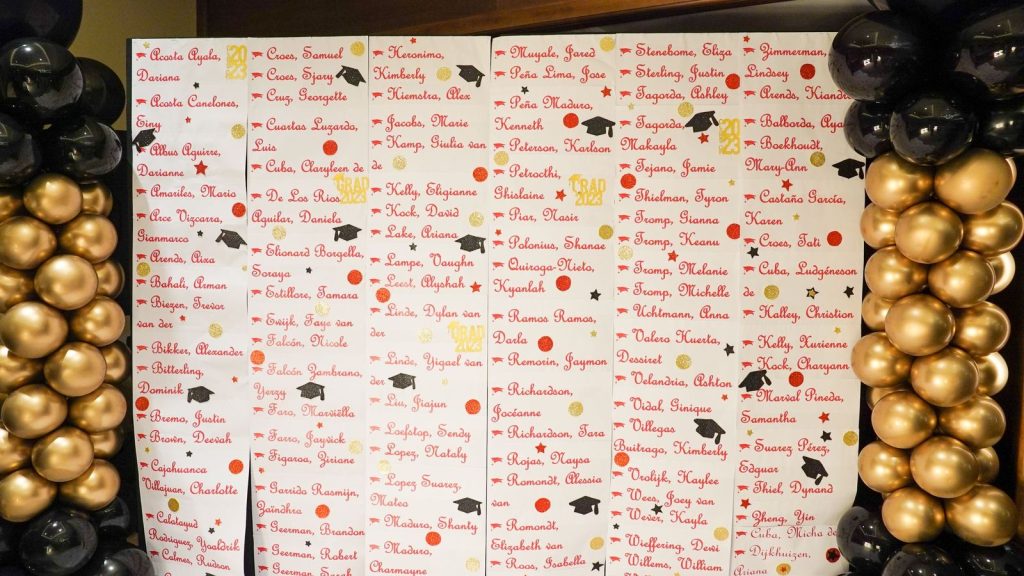 Acosta Ayala,
Dariana
2023
Acosta Canelones,
Einy
Albus Aguirre,
Darianne
Amariles, Mario
Arce Vizcarra,
Gianmarco
Arends, Aixa
Bahali, Arman
Biezen, Trevor
van der
Bikker, Alexander
Bitterling,
Dominik
Brema, Justin
Brown, Deevah
Cajahuanca
Villajuan, Charlotte
Calatayud
Rodriquez, Yoaldrik
Calmes, Rudson
Croes, Samuel
Croes, Sjary
Cruz, Georgette
Cuartas Luzardo,
Luis
Cuba, Claryleen de
De Los Rios
Aguilar, Daniela
GRAD
2023
Elionard Borgella,
Soraya
Estillore, Tamara
Ewijk, Faye van
Falcón, Nicole
Falcón Zambrano,
Yerzy
Faro, Marviëlla
Farro, Jayvick
Figaroa, Ziriane
Garrido Rasmijn,
Zaïndhra
Geerman, Brandon
Geerman, Robert
Geerman, Sarah
Heronimo,
Kimberly
Hiemstra, Alex
Jacobs, Marie
Kamp, Giulia van
de
Kelly, Eligianne
Kock, David
Lake, Ariana
Lampe, Vaughn
Leest, Alyshah
Linde, Dylan van
der
GRAD
2023
Linde, Yigael van
der
Liu, Jiajun
Loefstop, Sendy
Lopez, Nataly
Lopez Suarez,
Mateo
Maduro, Shanty
Maduro,
Charmayne
Muyale, Jared
Peña Lima, Jose
Peña Maduro,
Kenneth
Peterson, Karlson
Petrocchi,
Ghislaine
GRAD
2023
Piar, Nasir
Polonius, Shanae
Quiroga-Nieto,
Kyanlah
Ramos Ramos,
Darla
Remorin, Jaymon
Richardson,
Jocéanne
Richardson, Tara
Rojas, Naysa
Romondt, Alessia
van
Romondt,
Elizabeth van
Roos, Isabella
Stenebome, Eliza
Sterling, Justin
Tagorda, Ashley
Tagorda,
Makayla
2023
Tejano, Jamie
Thielman, Tyron
Tromp, Gianna
Tromp, Keanu
Tromp, Melanie
Tromp, Michelle
Uchtmann, Anna
Valero Huerta,
Dessiret
Velandria, Ashton
Vidal, Ginique
Villegas
Buitrago, Kimberly
Vrolijk, Haylee
Wees, Joey van
Wever, Kayla
Wieffering, Dewi
Willems, William
Zimmerman,
Lindsey
Arends, Kiandra
Balborda, Aya
Boekhoudt,
Mary-Ann
Castaño García,
Karen
Croes, Tati
Cuba, Ludgéneson
de
Halley, Christion
Kelly, Xurienne
Kock, Charyann
Marval Pineda,
Samantha
Suarez Pérez,
Edguar
Thiel, Dynand
Zheng, Yin
Cuba, Micha de
Dijkhuizen,
Ariana